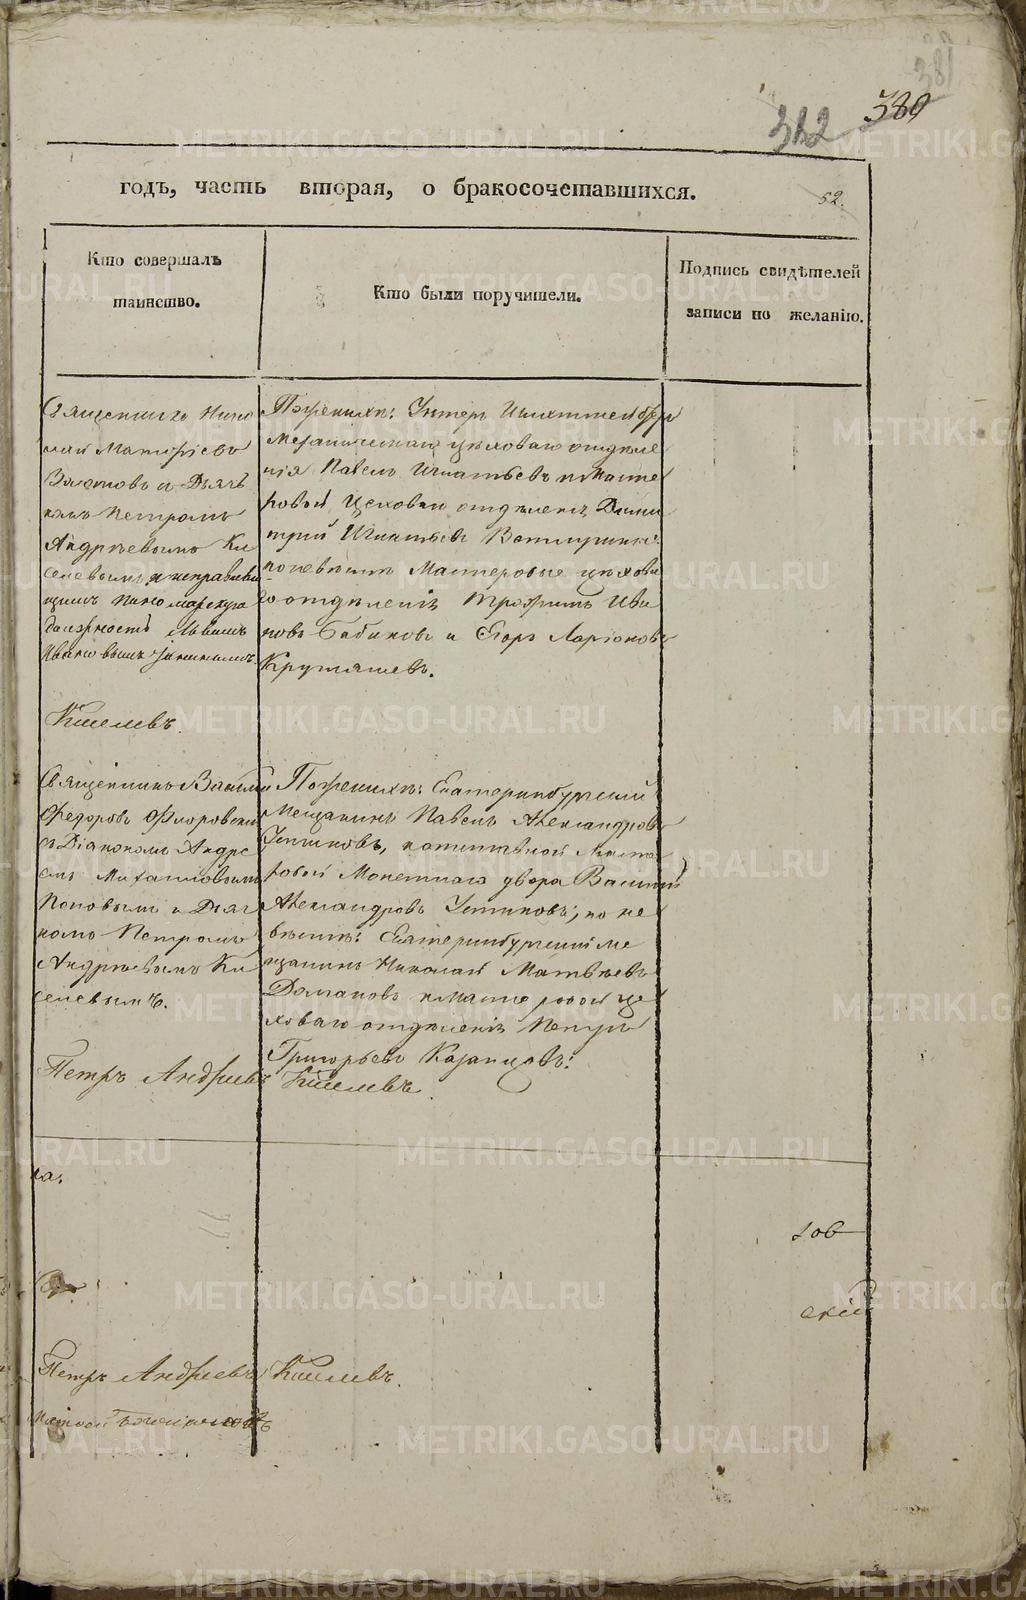 381
312 380
годъ, часть вторая, о бракосочетавшихся.
52.
Кто совершалъ
таинство.
Кто были поручители.
Подпись свидѣтелей
записи по желанію.
Священникъ Нико
лай Матфіевъ
и Дьяч
комъ Петромъ
Андреевымъ Ки
селевымъ и исправляю
щимъ пономарскую
должность Львомъ
Ивановымъ
Киселевъ.
По женихѣ: Унтеръ Шихтмейстеръ
Механическаго цеховаго отдѣле
нія Павелъ Игнатьевъ и Масте
ровой Цеховаго отдѣленія Дими
трій Игнатьевъ
по невѣстѣ Мастеровые цехова
го отдѣленія Трофимъ Ива
новъ Бабиновъ и Егоръ Ларіоновъ
Крутяшевъ.
Священникъ Василій
Федоровъ Флоровскій
съ Діакономъ Андре
емъ Михаиловымъ
Поповымъ и Дьяч
комъ Петромъ
Андреевымъ Ки
селевымъ.
По женихѣ: Екатеринбургскій
Мещанинъ Павелъ Александровъ
Устиновъ, Масте
ровой Монетнаго двора Василій
Александровъ Устиновъ; по не
вѣстѣ: Екатеринбургскій Ме
щанинъ Николай Матвѣевъ
Долгановъ и Мастеровой це
ховаго отдѣленія Петръ
Григорьевъ Казанцовъ:
Петръ Андреевъ Киселевъ.
ка.
ховъ
скій
Петръ Андреевъ Киселевъ.
METRIKI.GASO-URAL.RU